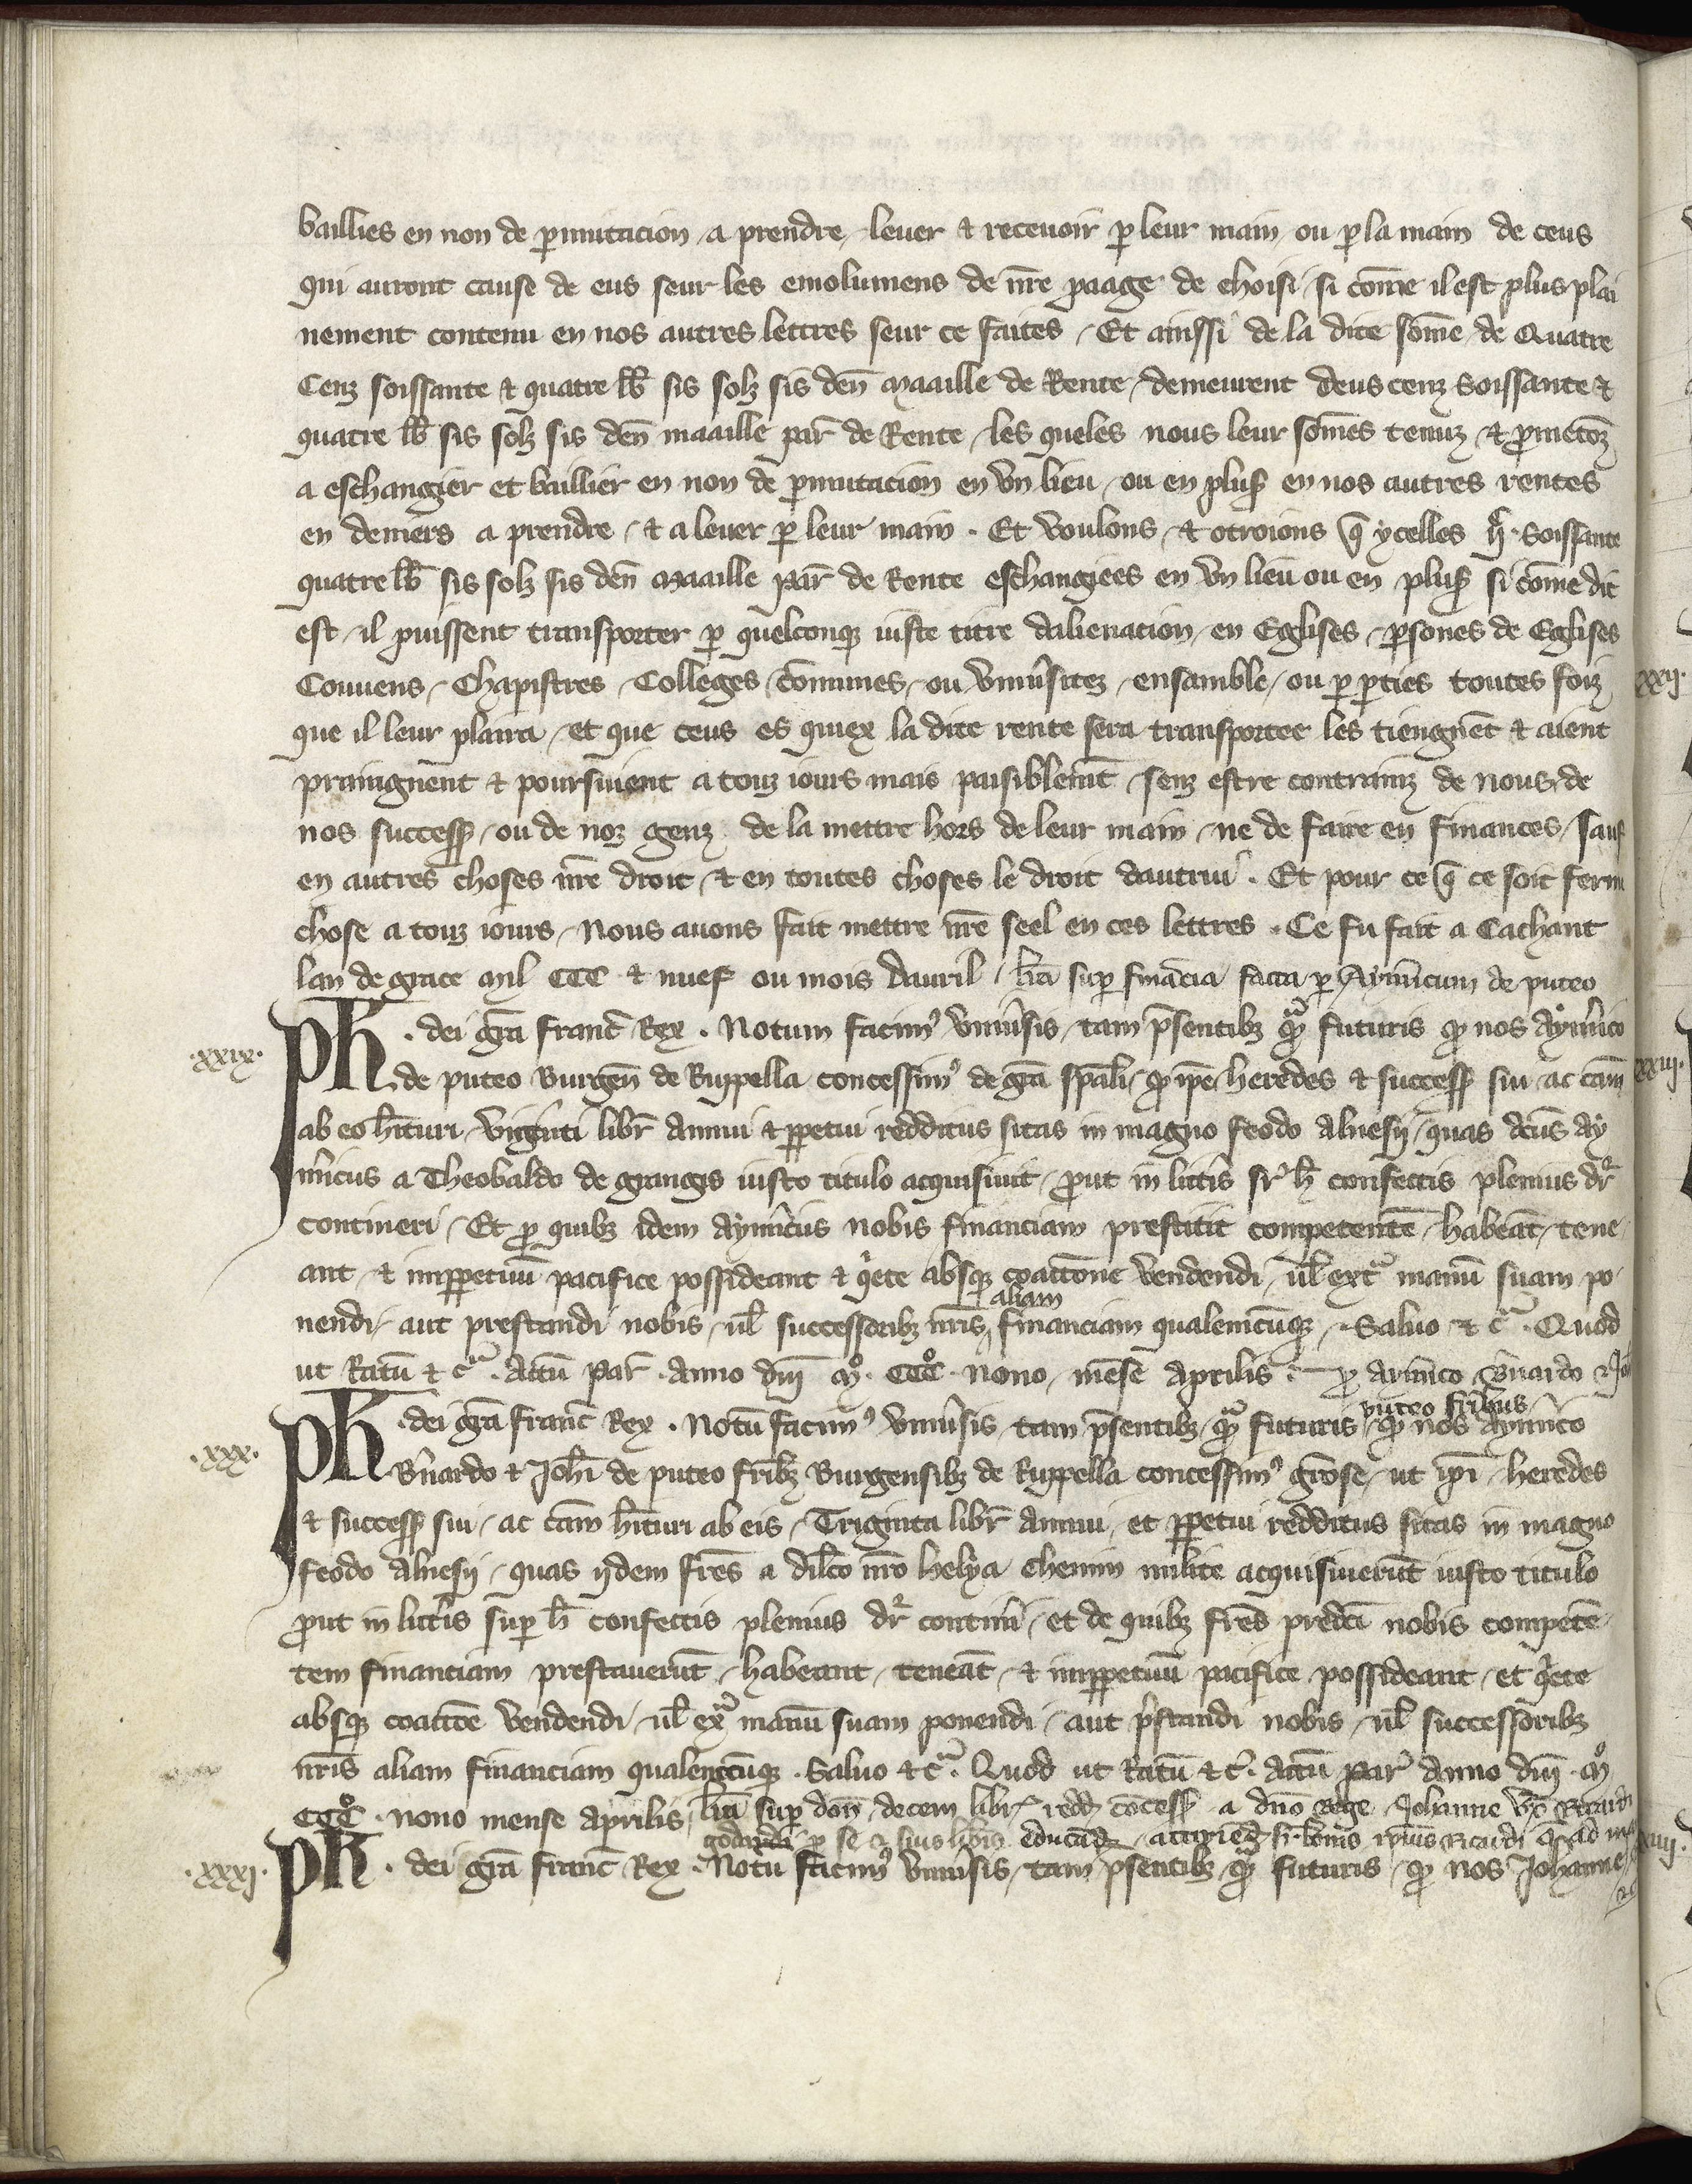 baillies en non de p̱mutacion / a prendre / leuer et receuoir p̱ leur main / ou p̱ la main de ceus
qui auront cause de eus seur les emolumens de nr̄e paage de choisi / si com̄e il est plus plai
nement contenu en nos autres lettres seur ce faites / Et ainssi de la dite som̄e de Quatre
Cenz soissante et quatre lb̄ sis solz sis den̄ maaille de Rente / demeurent deus cenz soissante et
quatre lb̄ sis solz sis den̄ maaille par̄ de Rente / les queles nous leur som̄es tenuz / et p̱metōz
a eschangier et baillier en non de p̱mutacion en vn lieu / ou en plus̄ en nos autres rentes
en deniers a prendre / et a leuer p̱ leur main . Et voulons / et otroions q̄ ycelles IIᶜ . Soissante
quatre lb̄ sis solz sis den̄ maaille par̄ de Rente eschangiees en vn lieu ou en plus̄ si com̄e dit
est / il puissent transporter p̱ quelconqꝫ iuste titre dalienacion / en Eglises / p̱sones de Eglises
Conuens / Chapistres / Colleges / com̄unes / ou vniu̾sitez / ensamble / ou p̱ p̱ties toutes foiz
que il leur plaira / et que ceus es quiex la dite rente sera transportee les tiengnēt et aient
praingnent et poursuient a touz iours mais paisiblem̄t / senz estre contrainz de nous / de
nos success̄ / ou de noz genz de la mettre hors de leur main / ne de faire en finances / sauf
en autres choses nr̄e droit / et en toutes choses le droit dautrui . Et pour ce q̄ ce soit ferm
chose a touz iours / Nous auons fait mettre nr̄e seel en ces lettres . Ce fu fait a Cachant
lan de grace mil CCC et nuef ou mois dauril / lr̄a sup̱ finācia facta p̱ Aym̾icum de puteo
.xxix. Ph̄ . dei gr̄a franc̄ Rex . Notum facimꝰ vniu̾sis / tam p̄sentibꝫ qᵃ̄ futuris ꝙ nos Aym̾ico
de puteo Burgen̄ de Ruppella concessimꝰ de gr̄a sp̄ali / ꝙ ip̄e heredes et success̄ sui ac cām
ab eo h̄ituri / viginti libr̄ annui et p̱petui redditus sitas in magno feodo alnesij / quas dc̄us Ay
m̾icus a Theobaldo de grangijs iusto titulo acquisiuit / ꝓut in litt̾is sr̾ h̄ confectis plenius dr̾
contineri / Et ꝓ quibꝫ idem aym̾icus nobis financiam prestitit competentē / habeāt / tene
ant / et imp̱petuū pacifice possideant et q̾ete absqꝫ coactione vendendi / ul̄ extᵃ manū suam po
nendi / aut prestandi nobis / ul̄ successoribꝫ nr̄is aliam financiam qualemcūqꝫ / . Saluo et cᵃ . Quod
ut Ratū et cᵃ . actū par̄ . anno dn̄i mº . CCCº . Nono / mēse aprilis . ꝓ aym̾ico / B̾nardo et Joh̄
puteo fr̄ibus
.xxx. Ph̄ . dei gr̄a franc̄ Rex . Notū facimꝰ vniu̾sis / tam p̄sentibꝫ / qᵃ̄ futuris / ꝙ nos Aym̾ico
B̾nardo et Joh̄i de puteo fr̄ibꝫ Burgensibꝫ de Ruppella concessimꝰ gr̄ose / ut ip̄i / heredes
et success̄ sui / ac cām h̄ituri ab eis / Triginta libr̄ annui / et p̱petui redditus sitas in magno
feodo alnesij / quas ijdem fr̄es a dil̄co nr̄o helya chenin milite acquisiuerūt iusto titulo
ꝓut in litt̾is sup̱ h̄ confectis plenius dr̾ contin̾i / et de quibꝫ fr̄es predc̄i nobis competē
tem financiam prestauerūt / habeant / teneāt / et imp̱petuū pacifice possideant / et q̾ete
absqꝫ coacc̄oe vendendi / ul̄ exᵃ manū suam ponendi / aut p̾standi nobis / ul̄ successoribꝫ
nr̄is aliam financiam qualemcūqꝫ . Saluo et cᵃ . Quod ut Ratū et c̾ . actū par̾ anno dn̄i . mº
CCCº . nono mense aprilis / lr̄a sup̱ don̄ decem libr̾ redd̄ cōcess̄ a dn̄o Rege / Johanne
godardi p̱ se et suis lib̾is
.xxxj. Ph̄ . dei gr̄a franc̄ Rex . Notū facimꝰ vniu̾sis / tam p̄sentibꝫ qᵃ̄ futuris / ꝙ nos Johanne